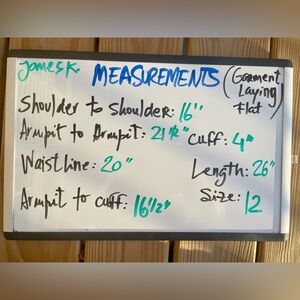 James K. MEASUREMENTS (Garment Laying Flat)
Shoulder to Shoulder: 16"
Armpit to Armpit: 21 1/2" Cuff: 4"
Waistline: 20" Length: 26"
Armpit to cuff: 16 1/2" Size: 12